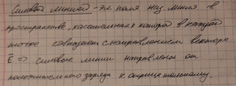 Силовой линией эл. поля наз. линия в
пространстве, касательная которой в каждой
точке совпадает с направлением вектора
E => силовые линии направлены от
положительного заряда к отрицательному.